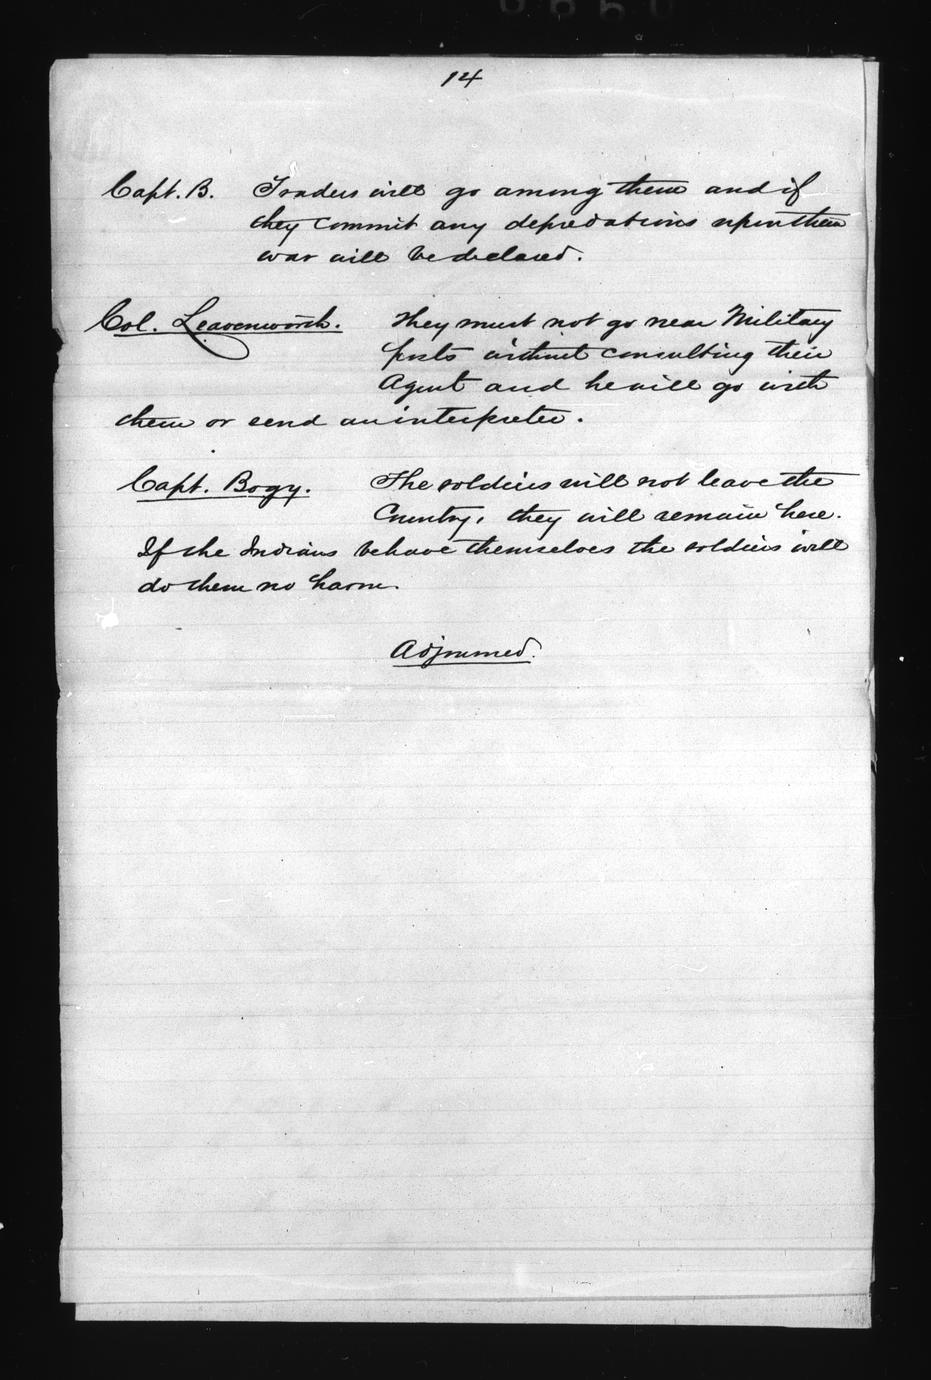 14
Capt. B. Traders will go among them and if
they commit any depredations upon them
war will be declared.
Col. Leavenworth. They must not go near Military
posts without consulting their
Agent and he will go with
them or send an interpreter.
Capt. Bogy. The soldiers will not leave the
Country, they will remain here.
If the Indians behave themselves the soldiers will
do them no harm.
Adjourned.